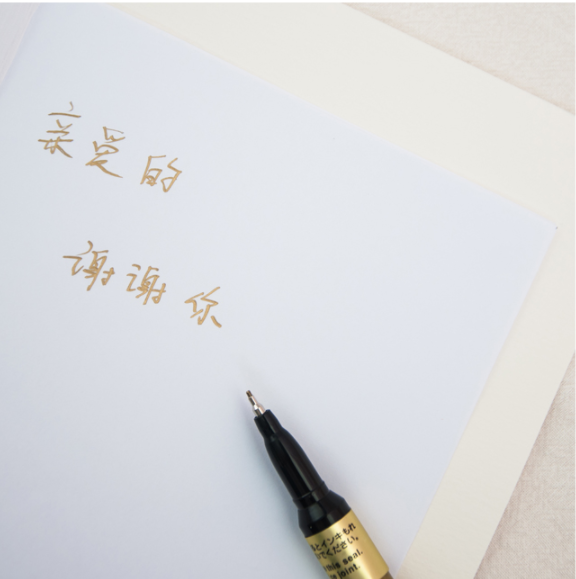 亲爱的
谢谢你
とインキもれ
てください。
this seal.
joint.